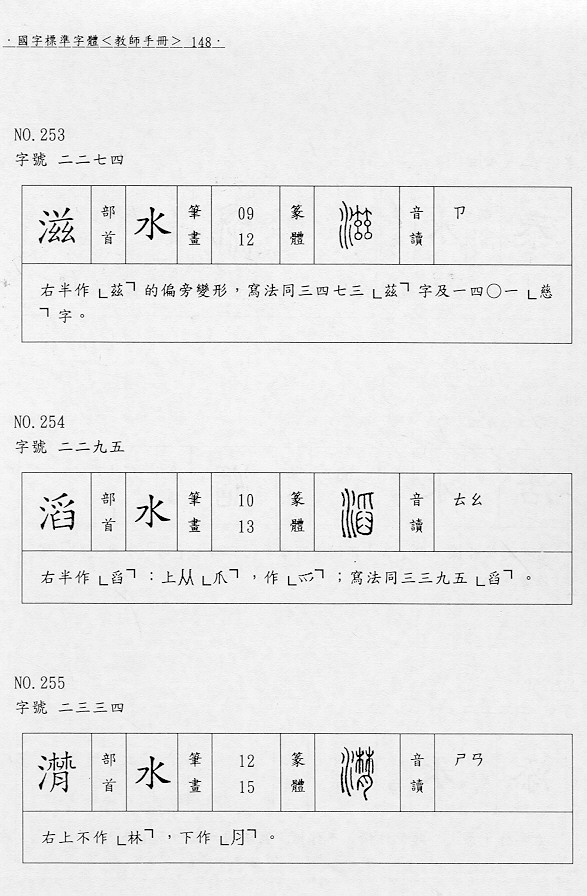 ·國字標準字體＜教師手冊＞ 148·
NO.253
字號 二二七四
滋 部首 水 筆畫 09 12 篆體 滋 音讀 ㄗ
右半作「茲」的偏旁變形，寫法同三四七三「茲」字及一四〇一「慈
」字。
NO.254
字號 二二九五
滔 部首 水 筆畫 10 13 篆體 滔 音讀 ㄊㄠ
右半作「舀」：上从「爪」，作「爫」；寫法同三三九五「舀」。
NO.255
字號 二三三四
潸 部首 水 筆畫 12 15 篆體 潸 音讀 ㄕㄢ
右上不作「林」，下作「⺼」。